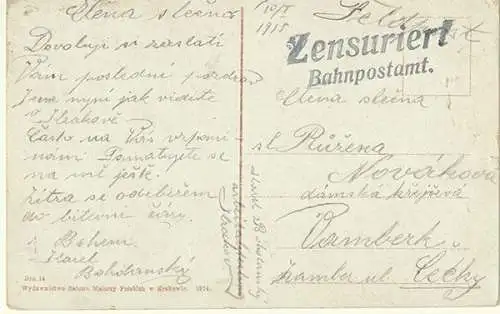 Ctěná slečno
Dovoluji si zaslati
Vám poslední pozdrav
Jsme nyní jak vidíte
v Krakově
Často na Vás vzpomí-
nám Pamatujete se
na mě ješk.
Zítra se odebírám
do bitevní čáry.
S Bohem
Karel
Bohdanský
Dru. 14
Wydawnictwo Salonu Malarzy Polskich w Krakowie. 1914.
10/X
1915
Feldpost
Zensuriert
Bahnpostamt.
Ctěná slečna
sl. Růžena
Nováková
dámská krejčová
Vamberk
Žamber ul. Čechy
Karel
Krakov